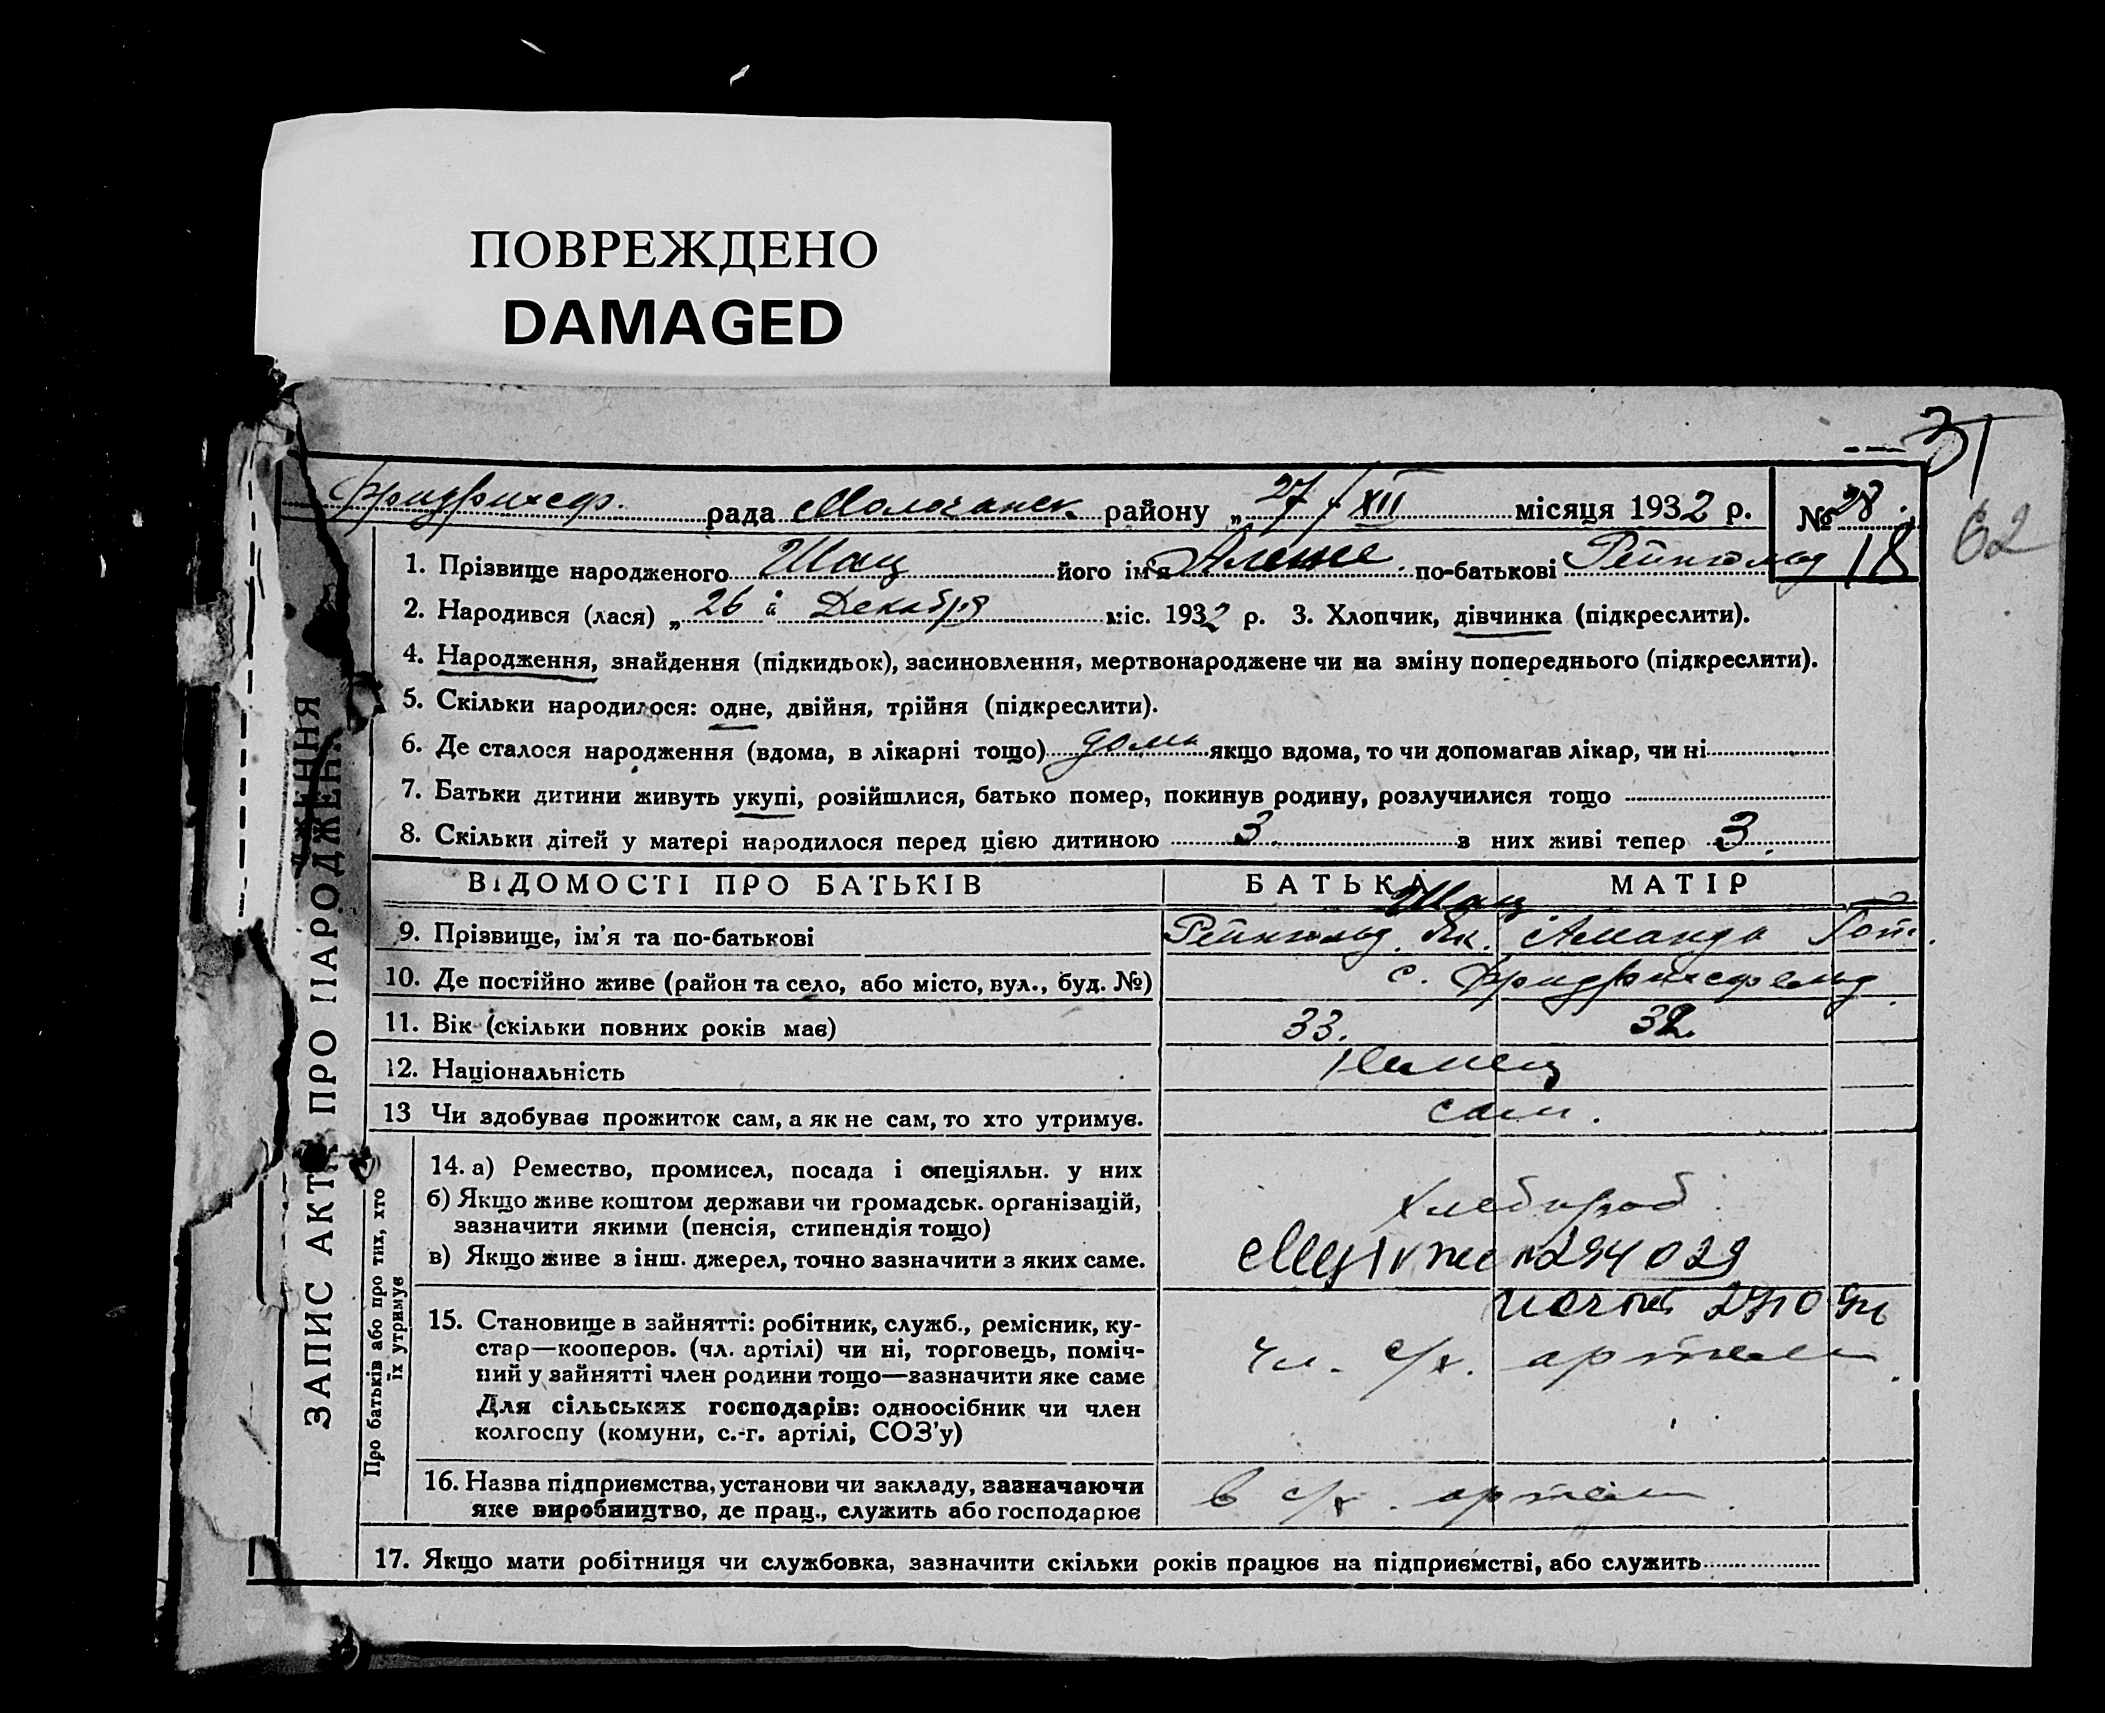 ПОВРЕЖДЕНО
DAMAGED
31
62
Фридрихсф. рада Молочанск. району „27 / XII місяця 1932 р. № 28.
18
1. Прізвище народженого Шац його ім'я по-батькові Рейнгольд
2. Народився (лася) „26 " Декабря міс. 1932 р. 3. Хлопчик, дівчинка (підкреслити).
4. Народження, знайдення (підкидьок), засиновлення, мертвонароджене чи на зміну попереднього (підкреслити).
5. Скільки народилося: одне, двійня, трійня (підкреслити).
6. Де сталося народження (вдома, в лікарні тощо) дома якщо вдома, то чи допомагав лікар, чи ні
7. Батьки дитини живуть укупі, розійшлися, батько помер, покинув родину, розлучилися тощо
8. Скільки дітей у матері народилося перед цією дитиною 3. з них живі тепер 3.
ВІДОМОСТІ ПРО БАТЬКІВ БАТЬКА МАТІР
Шац
9. Прізвище, ім'я та по-батькові Рейнгольд Аманда
10. Де постійно живе (район та село, або місто, вул., буд. №) с. Фридрихсфельд.
11. Вік (скільки повних років має) 33. 32.
12. Національність Немец
13 Чи здобуває прожиток сам, а як не сам, то хто утримує. сам.
14. а) Ремество, промисел, посада і спеціяльн. у них
б) Якщо живе коштом держави чи громадськ. організацій,
зазначити якими (пенсія, стипендія тощо) Хлебороб.
в) Якщо живе з інш. джерел, точно зазначити з яких саме. 294029
15. Становище в зайнятті: робітник, служб., ремісник, ку-
стар—кооперов. (чл. артілі) чи ні, торговець, поміч- чл. с/х. артели.
ний у зайнятті член родини тощо—зазначити яке саме
Для сільських господарів: одноосібник чи член
колгоспу (комуни, с.-г. артілі, СОЗ'у)
16. Назва підприємства, установи чи закладу, зазначаючи
яке виробництво, де прац., служить або господарює в с/х. артели.
17. Якщо мати робітниця чи службовка, зазначити скільки років працює на підприємстві, або служить
ЗАПИС АКТ ПРО НАРОДЖЕН
ЖЕННЯ
Про батьків або про тих, хто
їх утримує